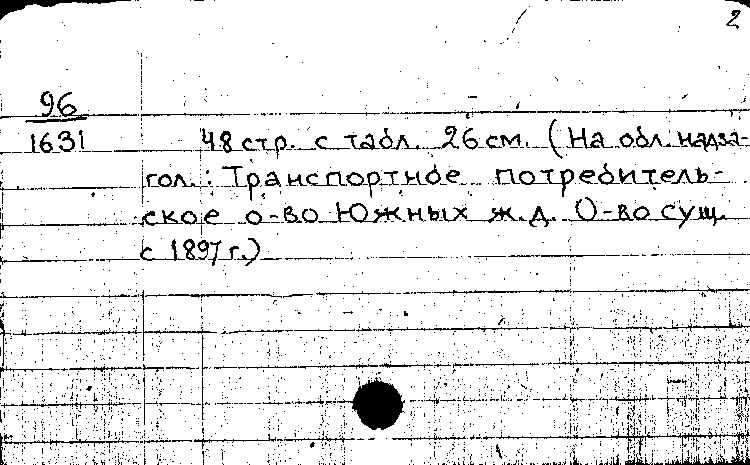 2
96
1631
48 стр. с табл. 26 см. (На обл. надза-
гол.: Транспортное потребитель-
ское о-во Южных ж.д. О-во сущ.
с 1897 г.)